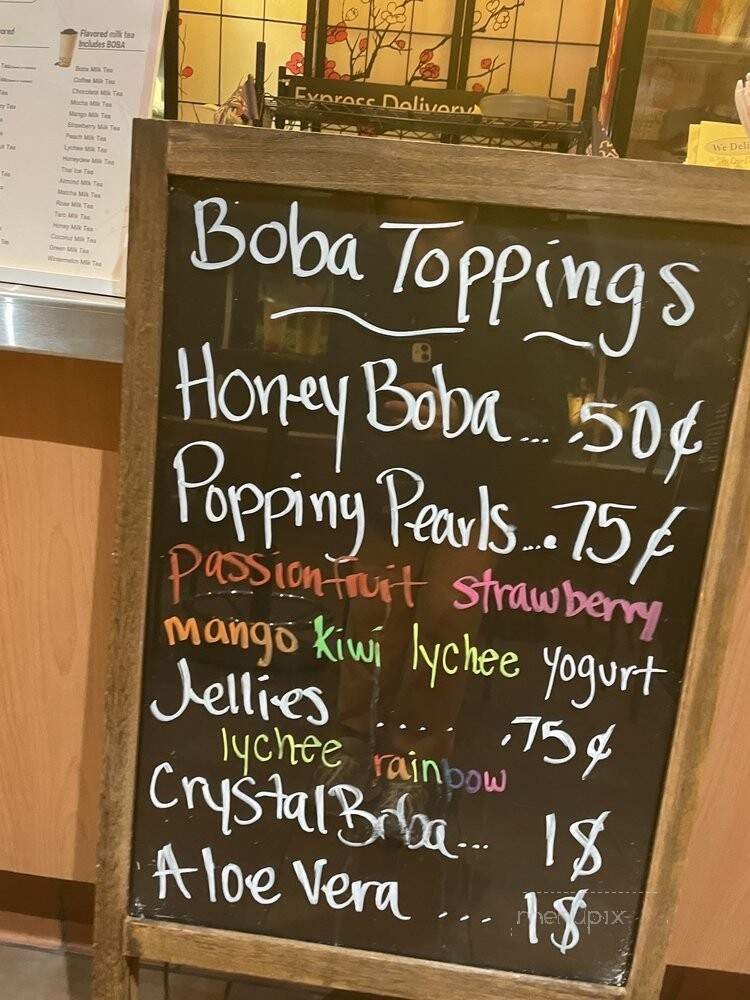 Flavored milk tea
Includes BOBA
Boba Milk Tea
Coffee Milk Tea
Chocolate Milk Tea
Mocha Milk Tea
Mango Milk Tea
Strawberry Milk Tea
Peach Milk Tea
Lychee Milk Tea
Honeydew Milk Tea
Thai Ice Tea
Almond Milk Tea
Matcha Milk Tea
Rose Milk Tea
Taro Milk Tea
Honey Milk Tea
Coconut Milk Tea
Green Milk Tea
Wintermelon Milk Tea
Express Delivery
We Deli
Boba Toppings
Honey Boba... .50¢
Popping Pearls... .75¢
passionfruit strawberry
mango kiwi lychee yogurt
Jellies .... .75¢
lychee rainbow
Crystal Boba... 1$
Aloe Vera ... 1$
menupix